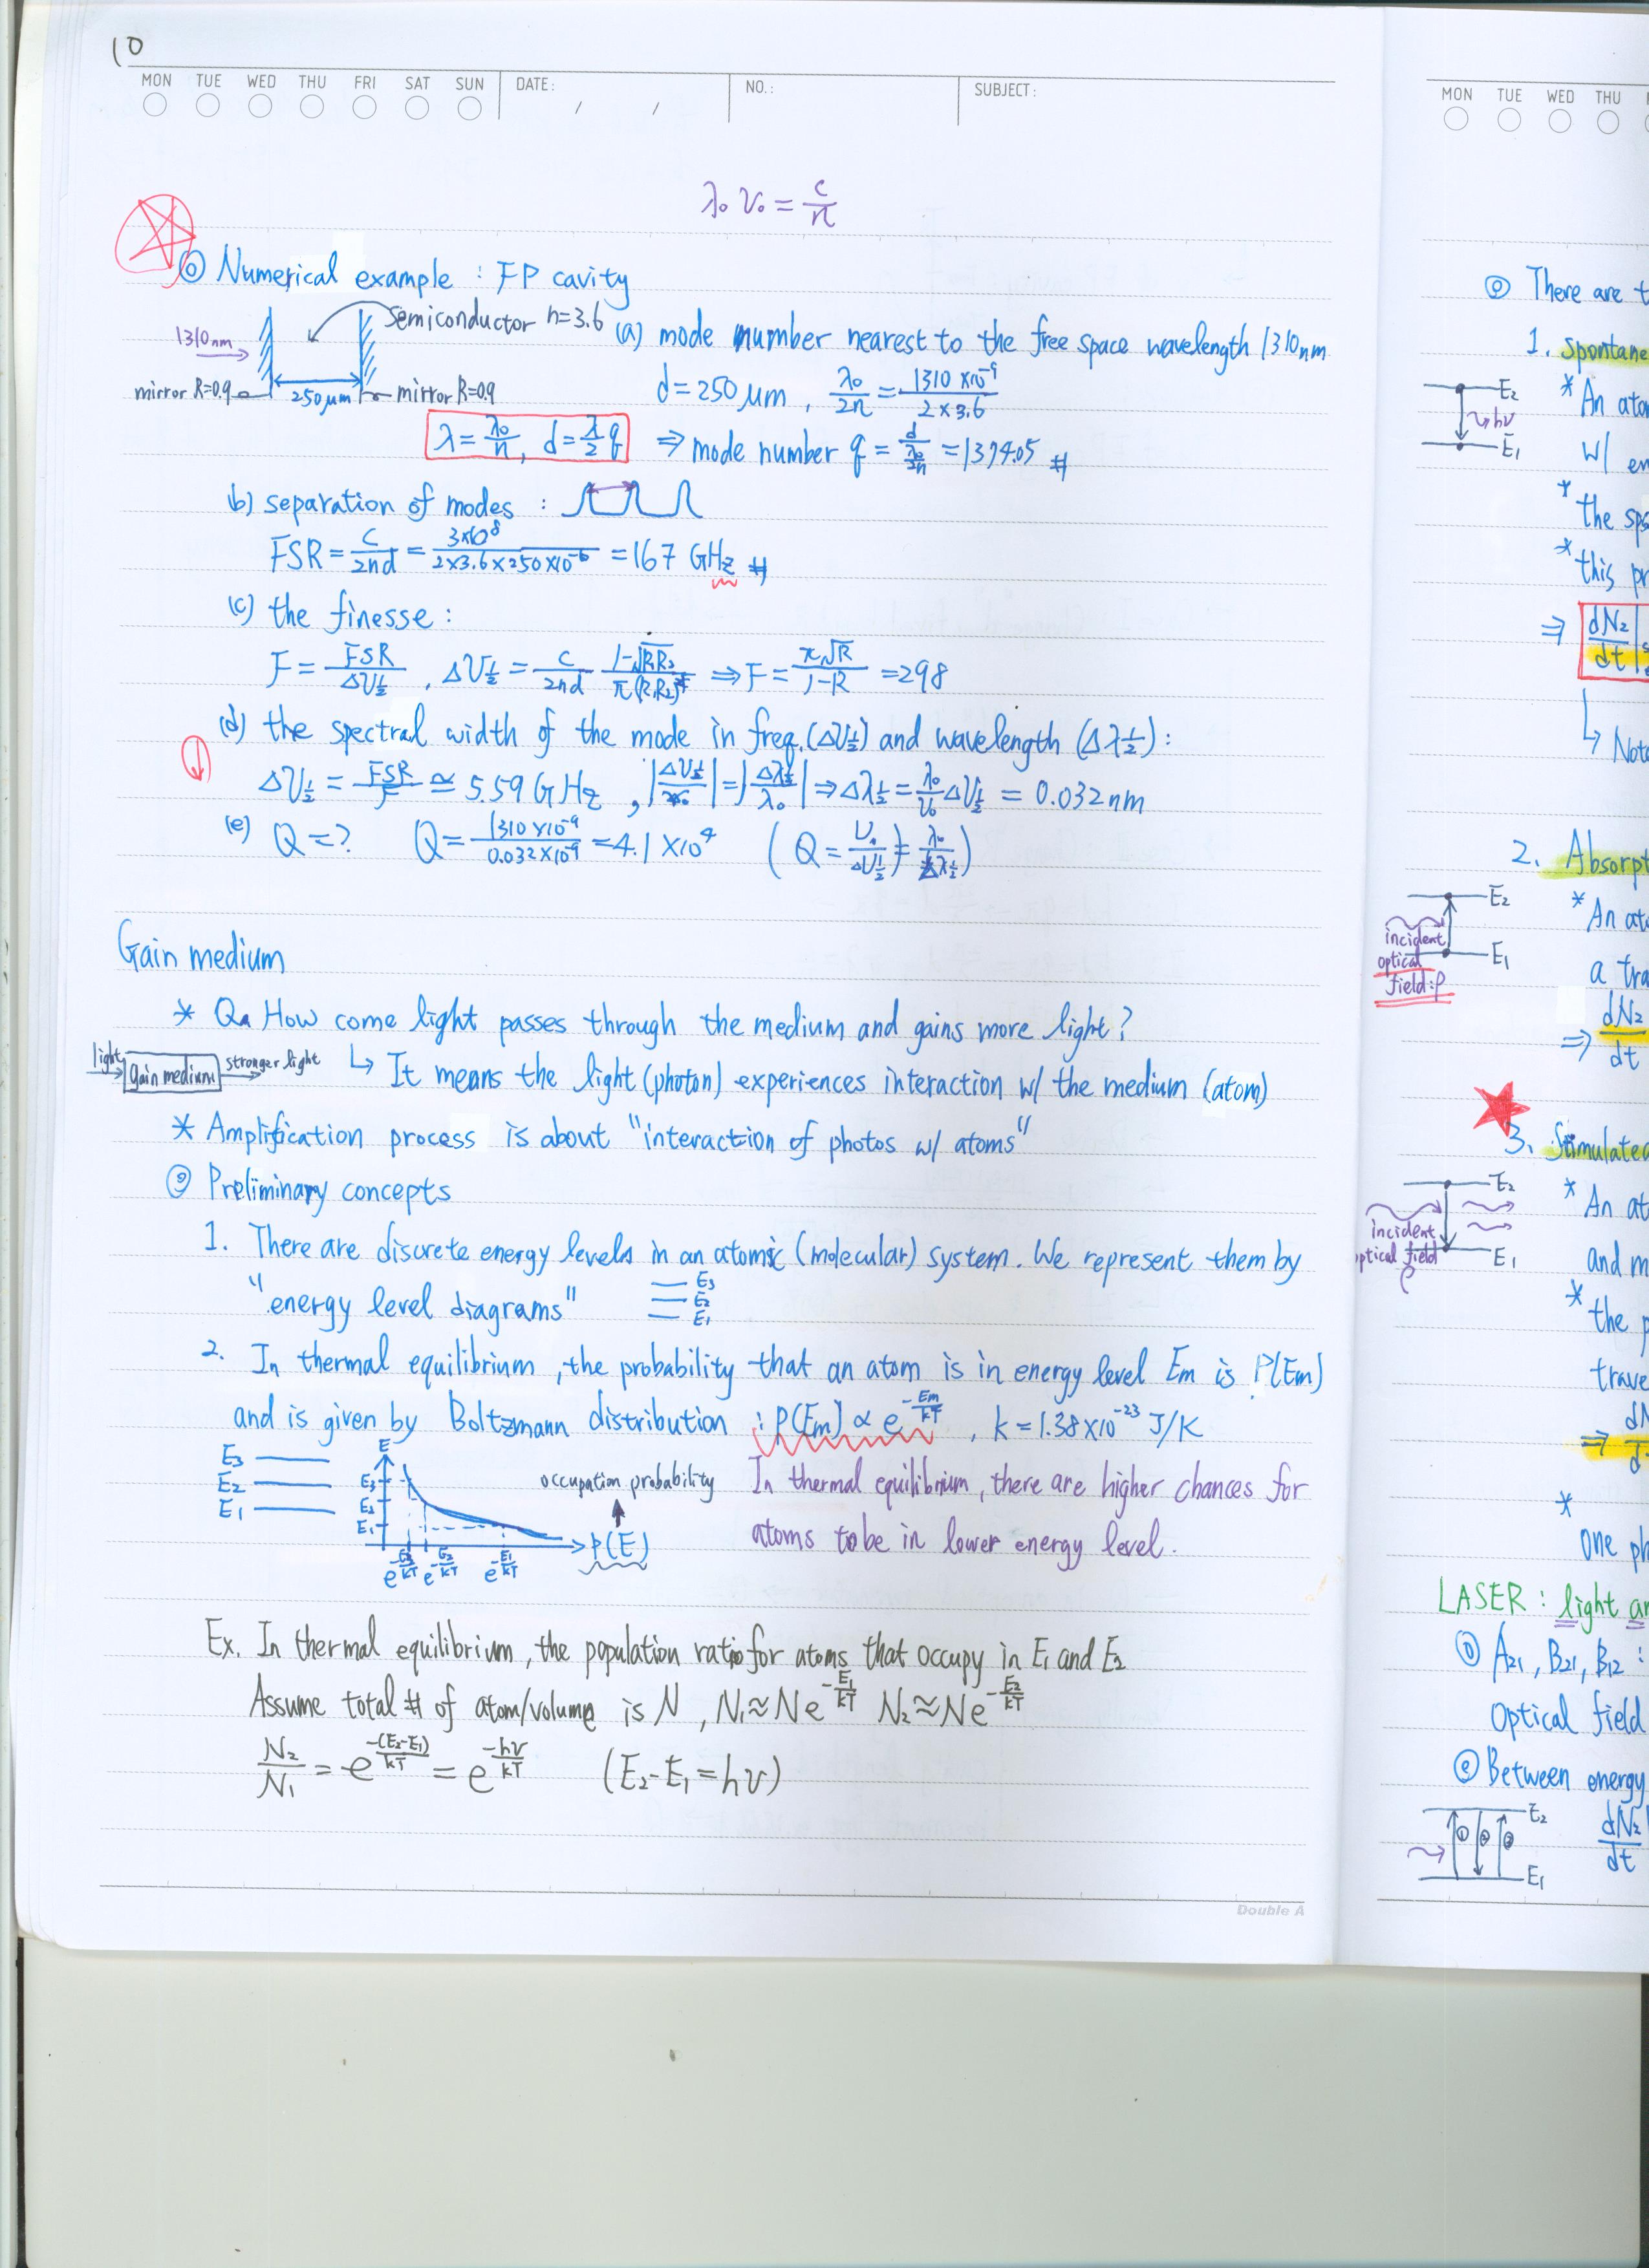 10
MON TUE WED THU FRI SAT SUN DATE: / / NO.: SUBJECT:
λ₀ν₀ = c/n
◎ Numerical example : FP cavity
1310nm
Semiconductor n=3.6
mirror R=0.9
250μm
mirror R=0.9
(a) mode number nearest to the free space wavelength 1310nm
d = 250 μm , λ₀/2n = 1310 ×10⁻⁹ / 2 × 3.6
λ = λ₀/n , d = λ/2 q ⇒ mode number q = d / (λ₀/2n) = 1374.05 #
b) separation of modes :
FSR = c/2nd = 3×10⁸ / 2×3.6×250×10⁻⁶ = 167 GHz #
(c) the finesse :
F = FSR/Δν½ , Δν½ = c/2nd (1-√R₁R₂) / π(R₁R₂)^¼ ⇒ F = π√R / 1-R = 298
(d) the spectral width of the mode in freq. (Δν½) and wavelength (Δλ½) :
Δν½ = FSR/F ≃ 5.59 GHz , |Δν½/ν₀| = |Δλ½/λ₀| ⇒ Δλ½ = λ₀/ν₀ Δν½ = 0.032nm
(e) Q = ? Q = 1310 ×10⁻⁹ / 0.032×10⁻⁹ = 4.1 ×10⁴ ( Q = ν₀/Δν½ = λ₀/Δλ½ )
Gain medium
* Q. How come light passes through the medium and gains more light?
light gain medium stronger light
↳ It means the light (photon) experiences interaction w/ the medium (atom)
* Amplification process is about "interaction of photos w/ atoms"
◎ Preliminary concepts
1. There are discrete energy levels in an atomic (molecular) system. We represent them by
"energy level diagrams"
E₃
E₂
E₁
2. In thermal equilibrium , the probability that an atom is in energy level Em is P(Em)
and is given by Boltzmann distribution : P(Em) ∝ e^(-Em/kT) , k = 1.38×10⁻²³ J/K
E₃
E₂
E₁
E
E₃
E₂
E₁
e^(-E₃/kT) e^(-E₂/kT) e^(-E₁/kT)
P(E)
occupation probability
In thermal equilibrium, there are higher chances for
atoms to be in lower energy level.
Ex. In thermal equilibrium , the population ratio for atoms that occupy in E₁ and E₂
Assume total # of atom/volume is N , N₁ ≈ Ne^(-E₁/kT) N₂ ≈ Ne^(-E₂/kT)
N₂/N₁ = e^(-(E₂-E₁)/kT) = e^(-hν/kT) (E₂-E₁ = hν)
Double A
MON TUE WED THU
◎ There are t
1. spontane
E₂
hν
E₁
* An ato
w/ en
* the spo
* this pr
⇒ dN₂/dt
↳ Note
2. Absorpt
E₂
incident
optical
field : ρ
E₁
* An ato
a tra
⇒ dN₂/dt
3. Stimulated
E₂
incident
optical field
ρ
E₁
* An at
and m
* the p
trave
*
one ph
LASER : light am
① A₂₁, B₂₁, B₁₂ :
Optical field
② Between energy
E₂
① ② ③
E₁
dN₂/dt